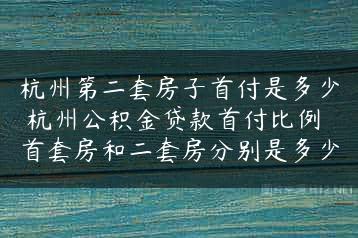 杭州第二套房子首付是多少
杭州公积金贷款首付比例
首套房和二套房分别是多少